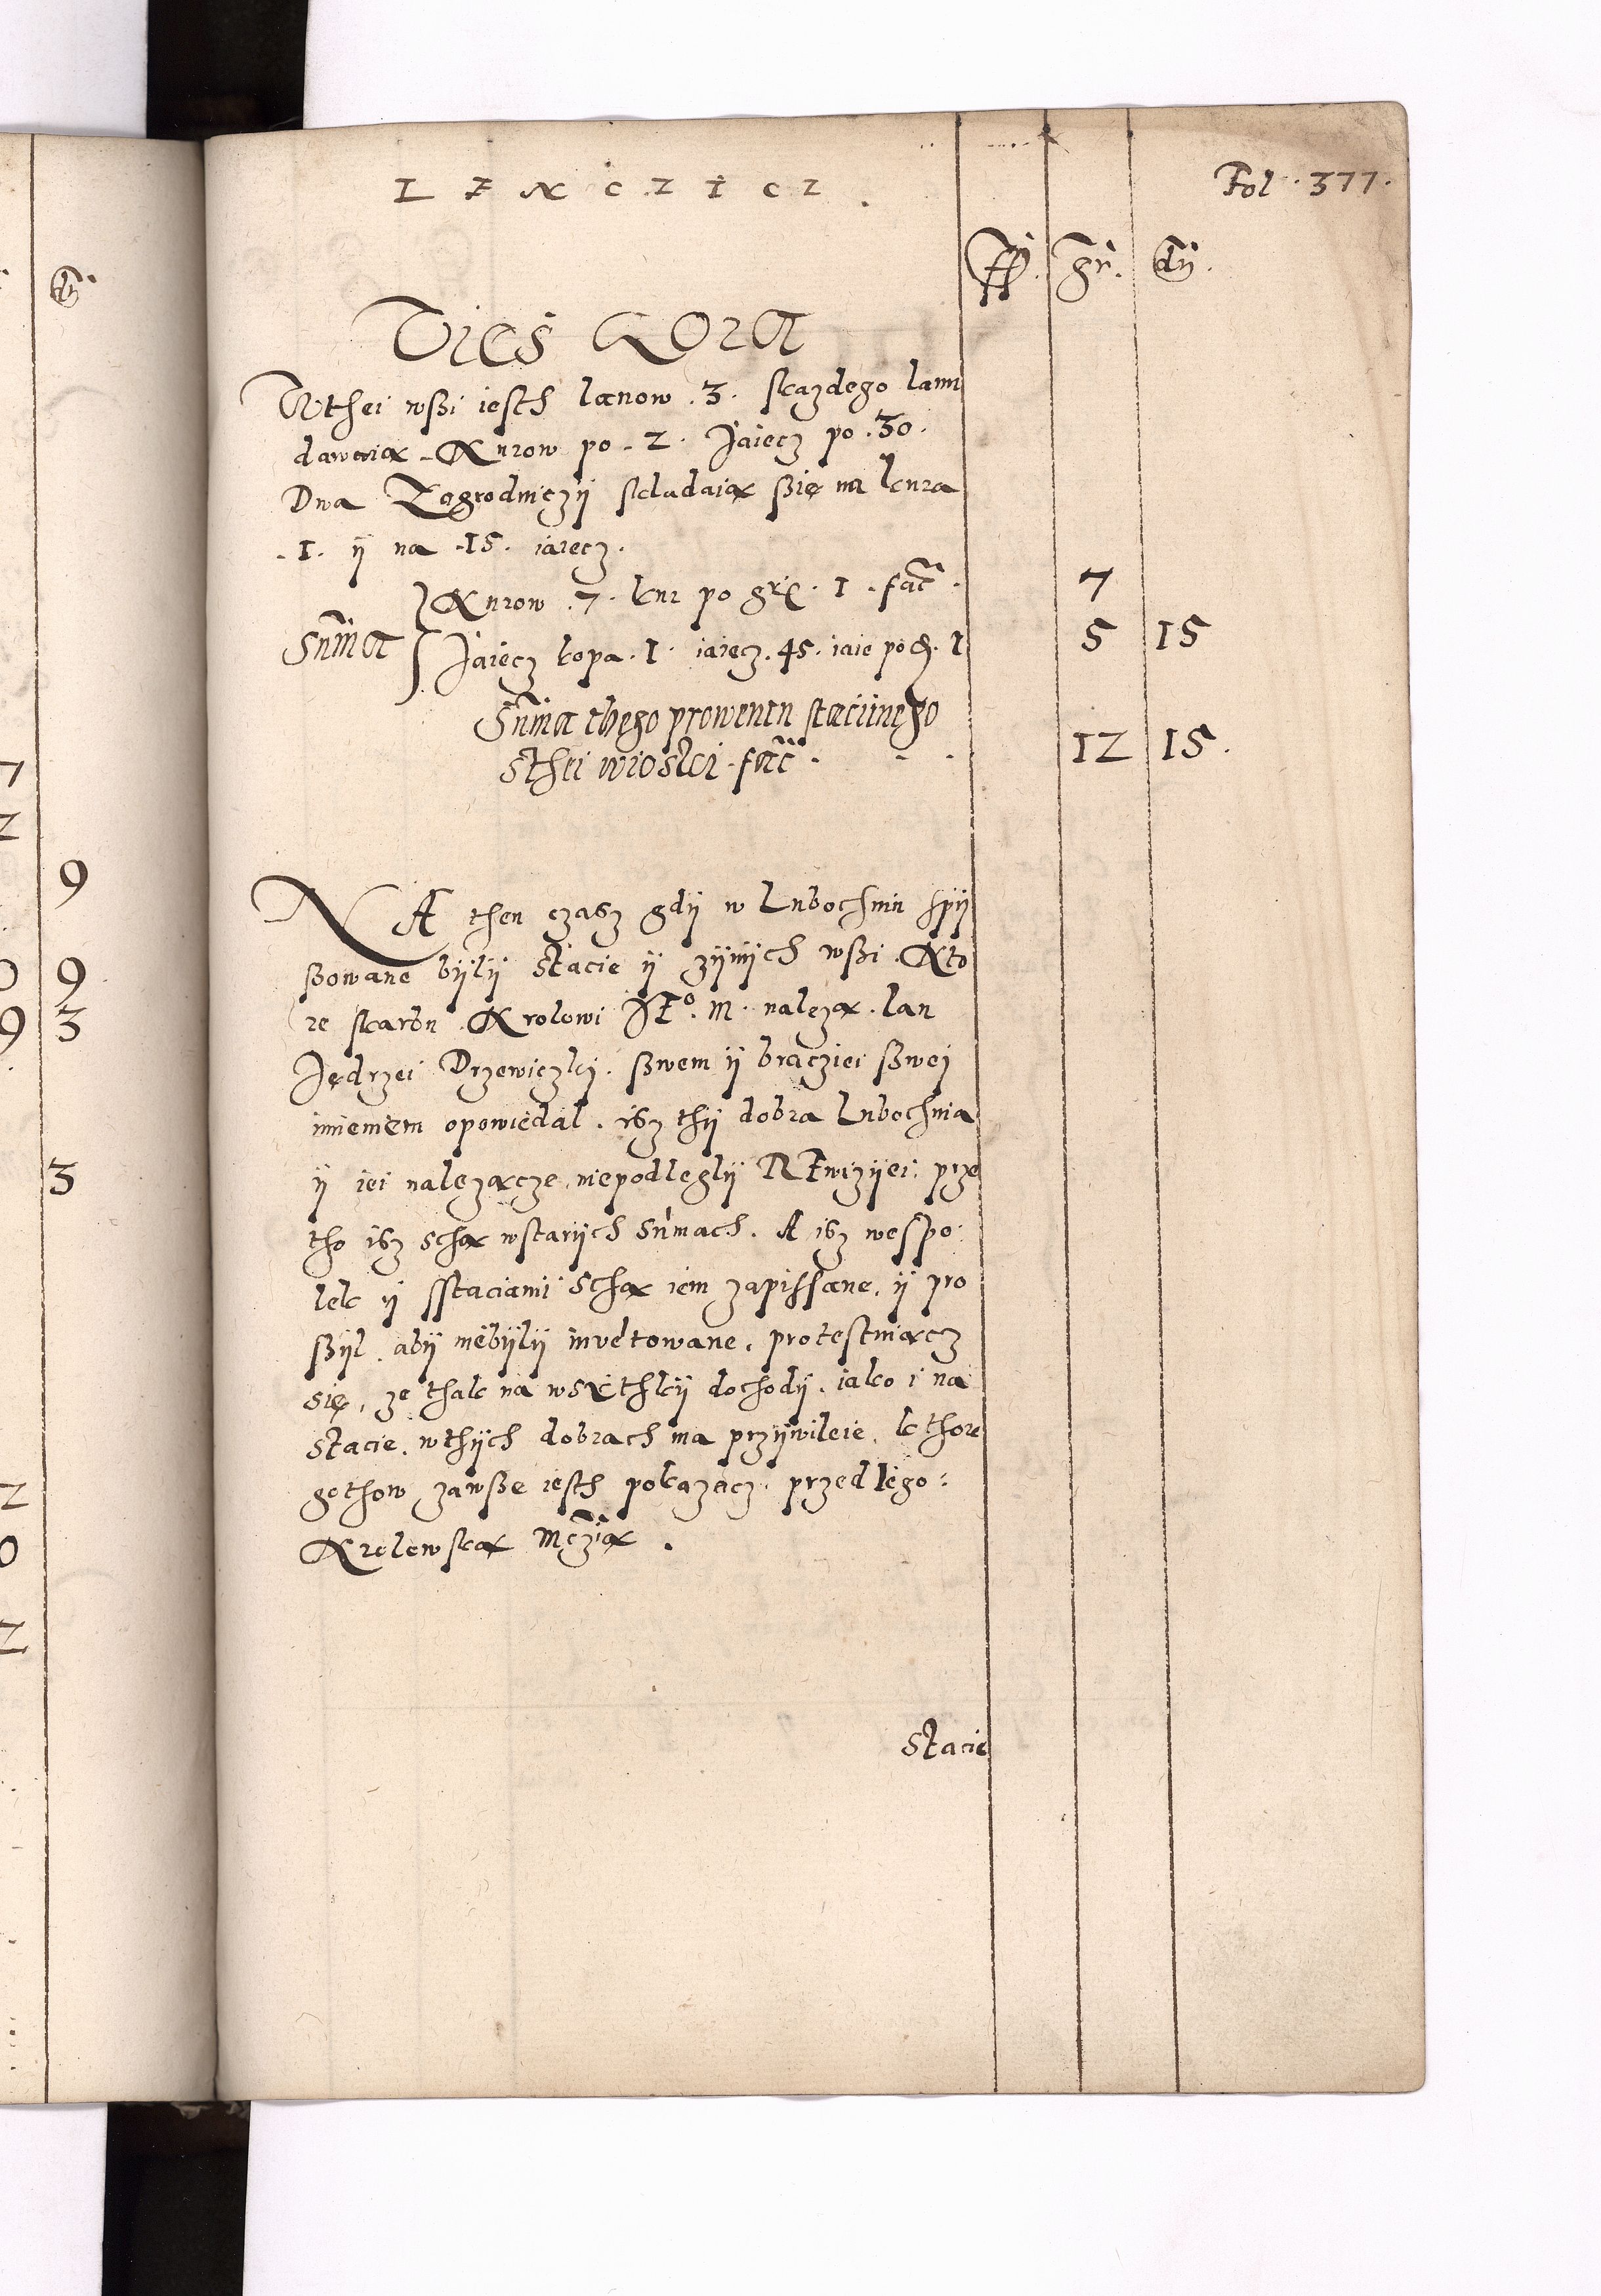 LENCZICZ.
Fol. 377.
ff. gr. dn.
Vies Kora
Wthei wßi iesth lanow .3. skazdego lanu
dawaią Kurow po .2. Jaiecz po .30.
Dwa Zagrodniczÿ skladaią ßię na kura
.1. ÿ na .15. iaiecz.
Kurow .7. kur po gr. 1. fac̄. 7
Sum̄a Jaiecz kopa .1. iaiecz .45. iaie po d. 1 5 15
Sum̄a thego prowentu staciinego
sthei wioski fac̄. 12 15.
NA then czasz gdÿ w Lubochniu spÿ
ßowane bÿlÿ stacie ÿ zÿnÿch wßi. Kto
re skarbu Krolowi JEo. M. należą. Pan
Jędrzei Drzewiczki. ßwem ÿ bracziei ßwei
imieniem opowiedal. isz thÿ dobra Lubochnia
ÿ iei nalezącze, niepodleglÿ REwizÿei. prze
tho isz są wstarÿch sum̄ach. A isz wespo
lek ÿ sstaciami schą iem zapissane, ÿ pro
ßÿl. abÿ niebÿlÿ inve͂towane, protestuiącz
się, ze thak na wsÿthkÿ dochodÿ. iako i na
stacie. wthÿch dobrach ma przÿwileie. kthore
gothow zawße iesth pokazacz. przed Iego:
Krolewską Mczią.
stacie
9
9
9 3
3